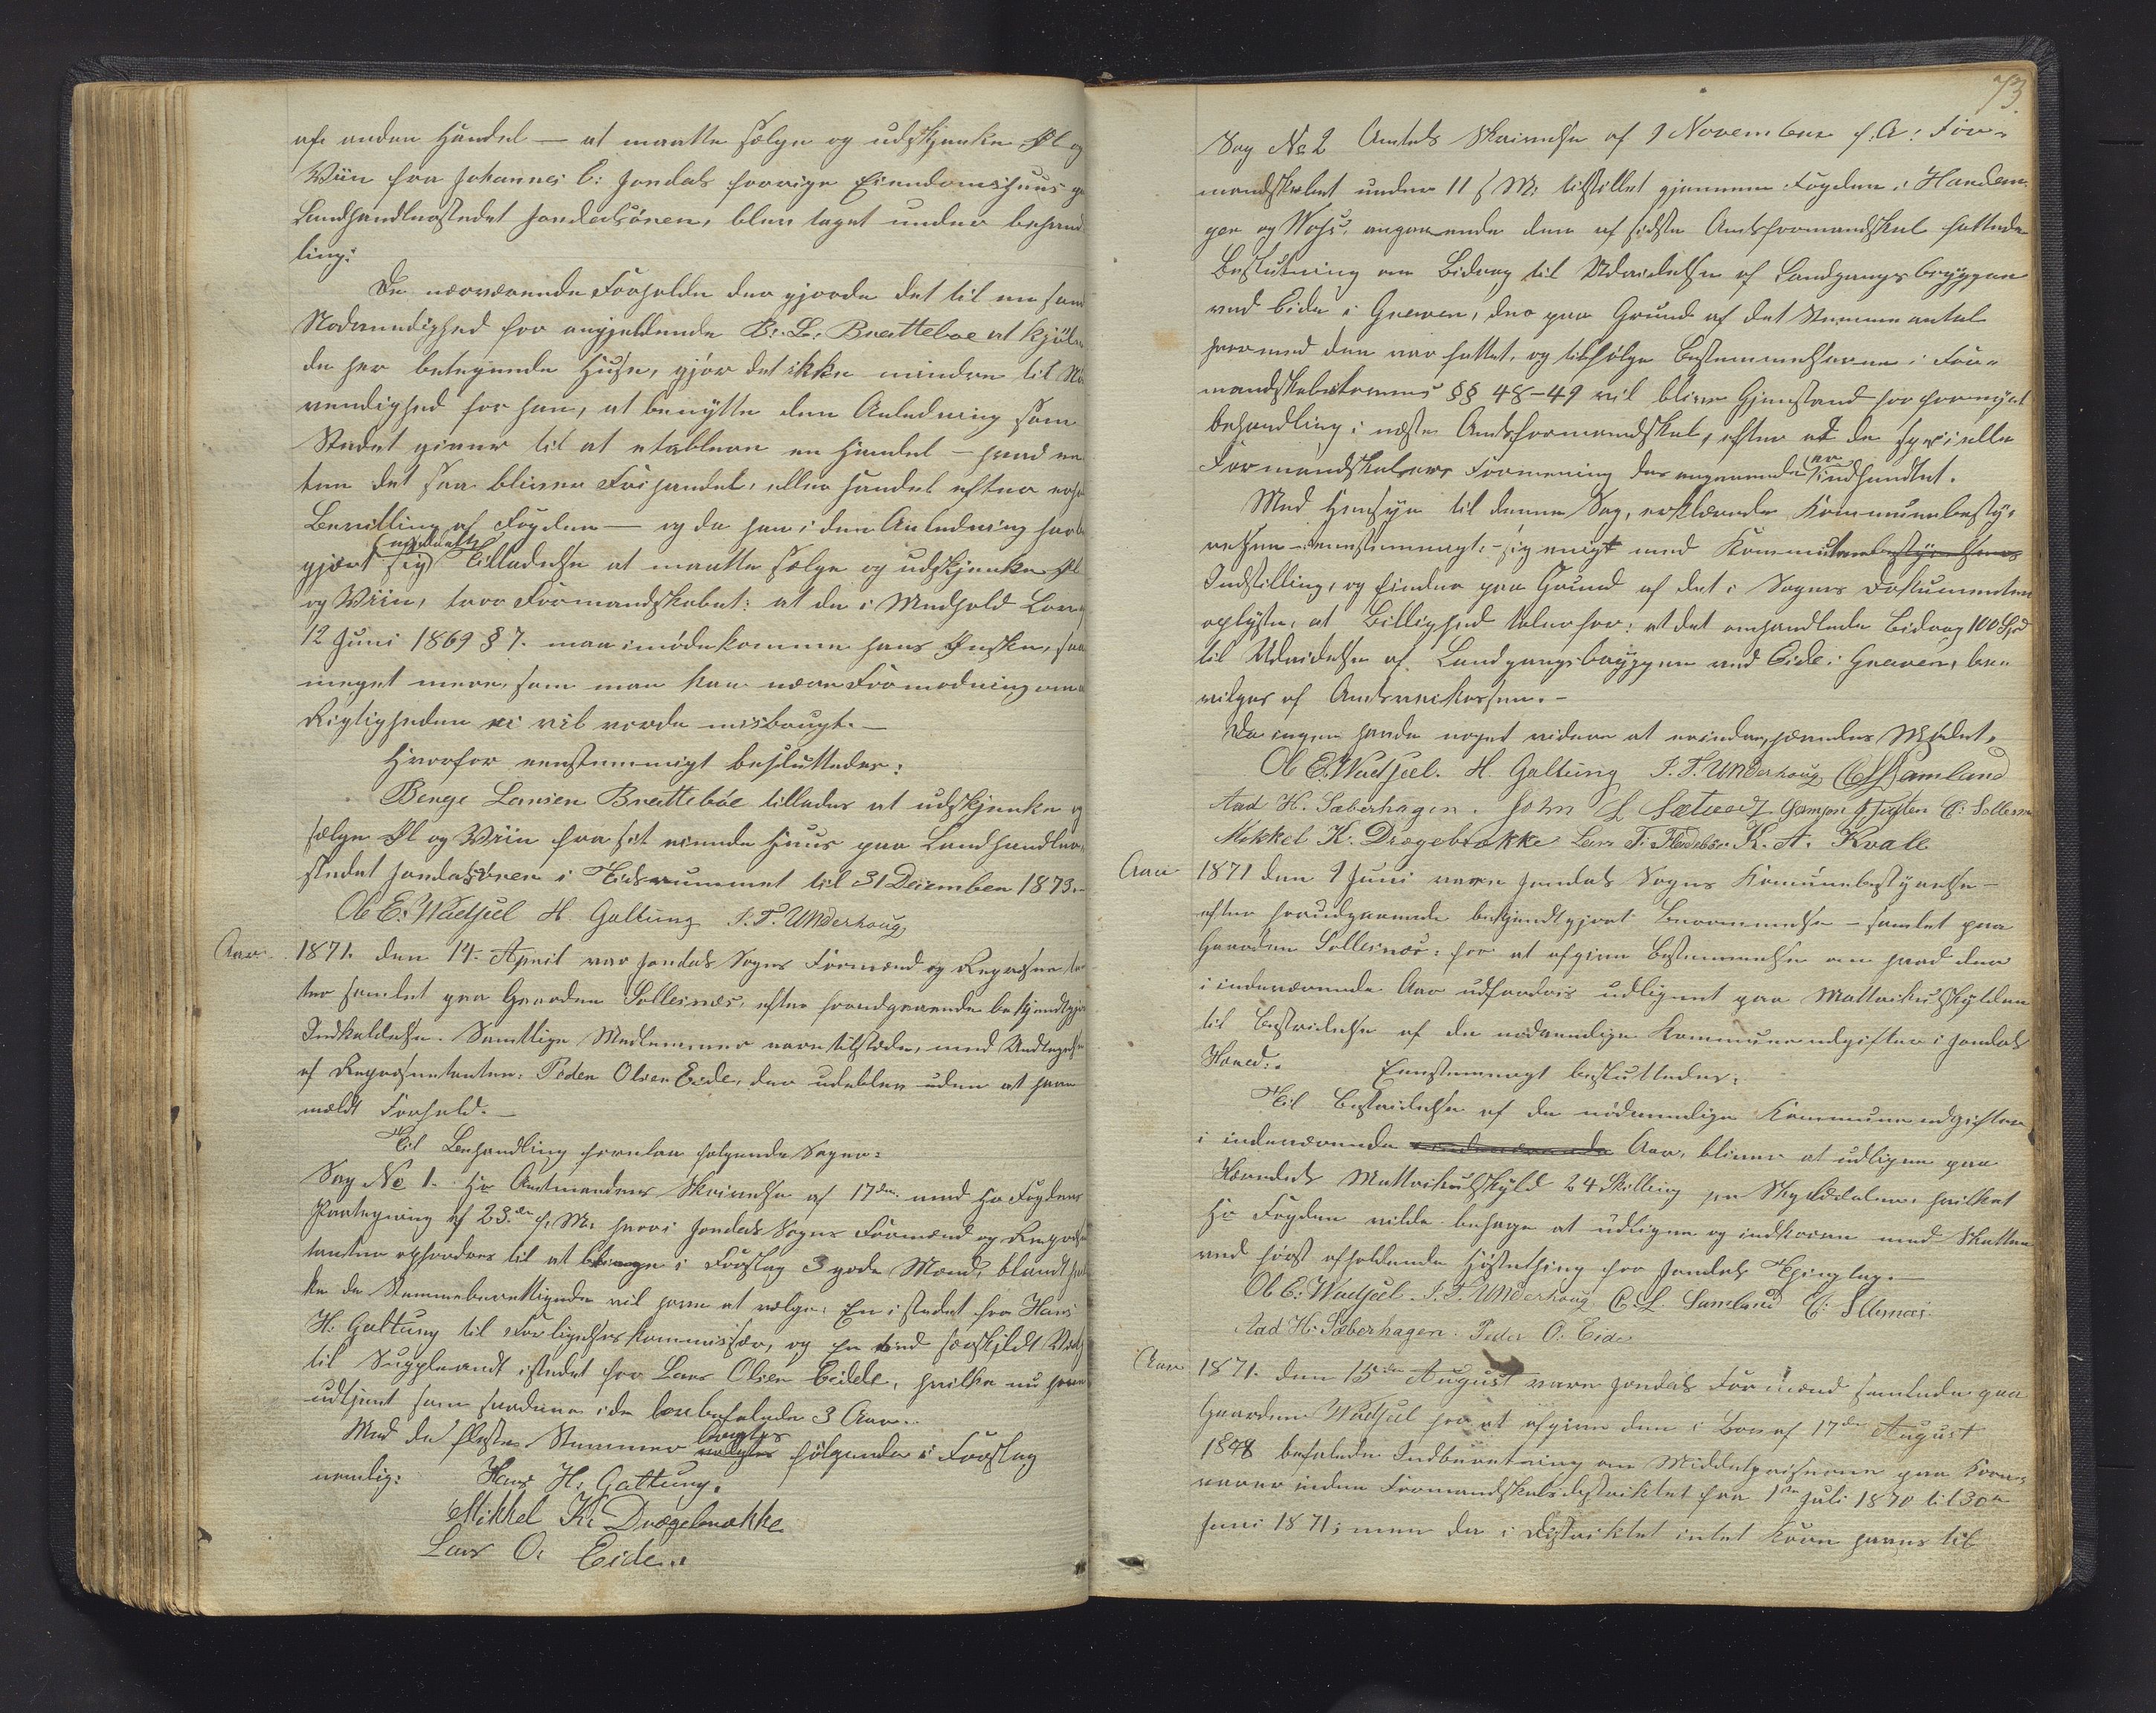 afe anden Handel — at maatte sælge og udskjænke Øl og
Viin fra Johannes E: Jondals forrige Eiendomshuus paa
Landhandlerstedet Jondalsören, blev taget under behand
ling:
De nærværende Forholde der gjorde det til en saa
Nödvendighed for angjeldende B: L: Brattebøe at kjöbe
de her betegnede Huse, gjör det ikke mindre til Nö
vendighed for ham, at benytte den Anledning som
Stedet giver til at etablere en Handel — hvad en
ten det saa bliver Frihandel, eller Handel efter
Bevilling af Fogden — og da han i den Anledning har
gjort sig Tilladelse at maatte sælge og udskjænke Øl
og Viin, troer Formandskabet: at de i Medhold Lov
12 Juni 1869 § 7. maa imödekomme hans Önske, saa
meget mere, som man kan nære Formodning om
Rigtigheden ei vil vorde misbrugt. —
Hvorfor eenstemmigt besluttedes:
Benge Larsen Brattebøe tillades at udskjænke og
sælge Øl og Viin fra sit eiende Huus paa Landhandler
stedet Jondalsören i Tidsrummet til 31 December 1873. —
Ol E. Wadsel H. Galtung S. T. Underhoug
Aar 1871. den 14. April var Jondals Sogns Formænd og Repræsenta
ter samlet paa Gaarden Sollesnæs, efter forudgaaende bekjendtgjor
Indkaldelse. Samtlige Medlemmer vare tilstæde, med Undtagelse
af Repræsentanten: Peder Olsen Eide, der udeblev uden at have
meldt Forfald. —
Til Behandling forelaa følgende Sager:
Sag No 1. Hr Amtmandens Skrivelse af 17de med Hr Fogdens
Paategning af 23.de f. M. hvori Jondals Sogns Formænd og Repræse
tanter opfordres til at bringe i Forslag 3 gode Mænd, blandt
ke de Stemmeberettigede vil have at vælge: En istedet for Hans
H. Galtung til Forligelseskommissær, og En ved særskildt
til Suppleant istedet for Lars Olsen Eide, hvilke nu have
udtjent som saadanne i de lovbefalede 3 Aar. —
Med de fleste Stemmer bragtes følgende i Forslag
nemlig: Hans H. Galtung.
Mikkel K. Drægebrække
Lars O. Eide. —
73.
Sag No 2 Amtets Skrivelse af 9 November f. A: For-
mandskabet under 11 f M: tilstillet gjennem Fogden i Hardan-
ger og Voss, angaaende den af sidste Amtsformandskab fattede
Beslutning om Bidrag til Udvidelse af Landgangsbryggen
ved Eide i Graven, der paa Grund af det Stemmeantal
hvormed den var fattet, og tilfølge Bestemmelserne i For-
mandskabslovens §§ 48-49 vil blive Gjenstand for fornyet
behandling i næste Amtsformandskab, efter at de specielle
Formandskabers Formening derangaaende er indhendtet.
Med Hensyn til denne Sag, erklærede Kommunebesty-
relsen — eenstemmigt — sig enigt med
Indstilling, og finder paa Grund af det i Sagens Dokumenter
oplyste, at Billighed taler for: at det omhandlede Bidrag 100 Spd
til Udvidelse af Landgangsbryggen ved Eide i Graven, be-
vilges af Amtsveikassen. —
Da ingen havde noget videre at erindre, hævedes Mødet.
Ol E. Wadsel. H. Galtung S. T. Underhoug C L Samland
Aad H. Sæberhagen. John L Sætvedt E: Sollesnes
Mikkel K. Drægebrække Lars K. A. Kvale
Aar 1871 den 9 Juni vare Jondals Sogns Komunebestyrelse —
efter forudgaaende bekjendtgjort Berammelse — samlet paa
Gaarden Sollesnæs: for at afgive Bestemmelse om hvad der
i indeværende Aar udfordres udlignet paa Matrikulskylden
til Bestridelse af de nödvendige Kommuneudgifter i Jondals
Hered: Eenstemmigt besluttedes:
Til Bestridelse af de nödvendige Kommuneudgifter
i indeværende Aar, bliver at udligne paa
Heredets Matrikulskyld 24 Skilling pr Skylddaler, hvilket
Hr Fogden vilde behage at udligne og indkræve med Skatten
ved först afholdende Høstething for Jondals Thinglag. —
Ol E: Wadsel. S. T. Underhoug C. L. Samland E: Sollesnæs
Aad H: Sæberhagen Peder O. Eide
Aar 1871. den 15de August vare Jondals Formænd samlede paa
Gaarden Wadsel for at afgive den i Lov af 17de August
1848 befalede Indberetning om Middelpriserne paa Korn-
varer inden Formandskabsdistriktet fra 1ste Juli 1870 til 30te
Juni 1871; men da i Distriktet intet Korn haves til